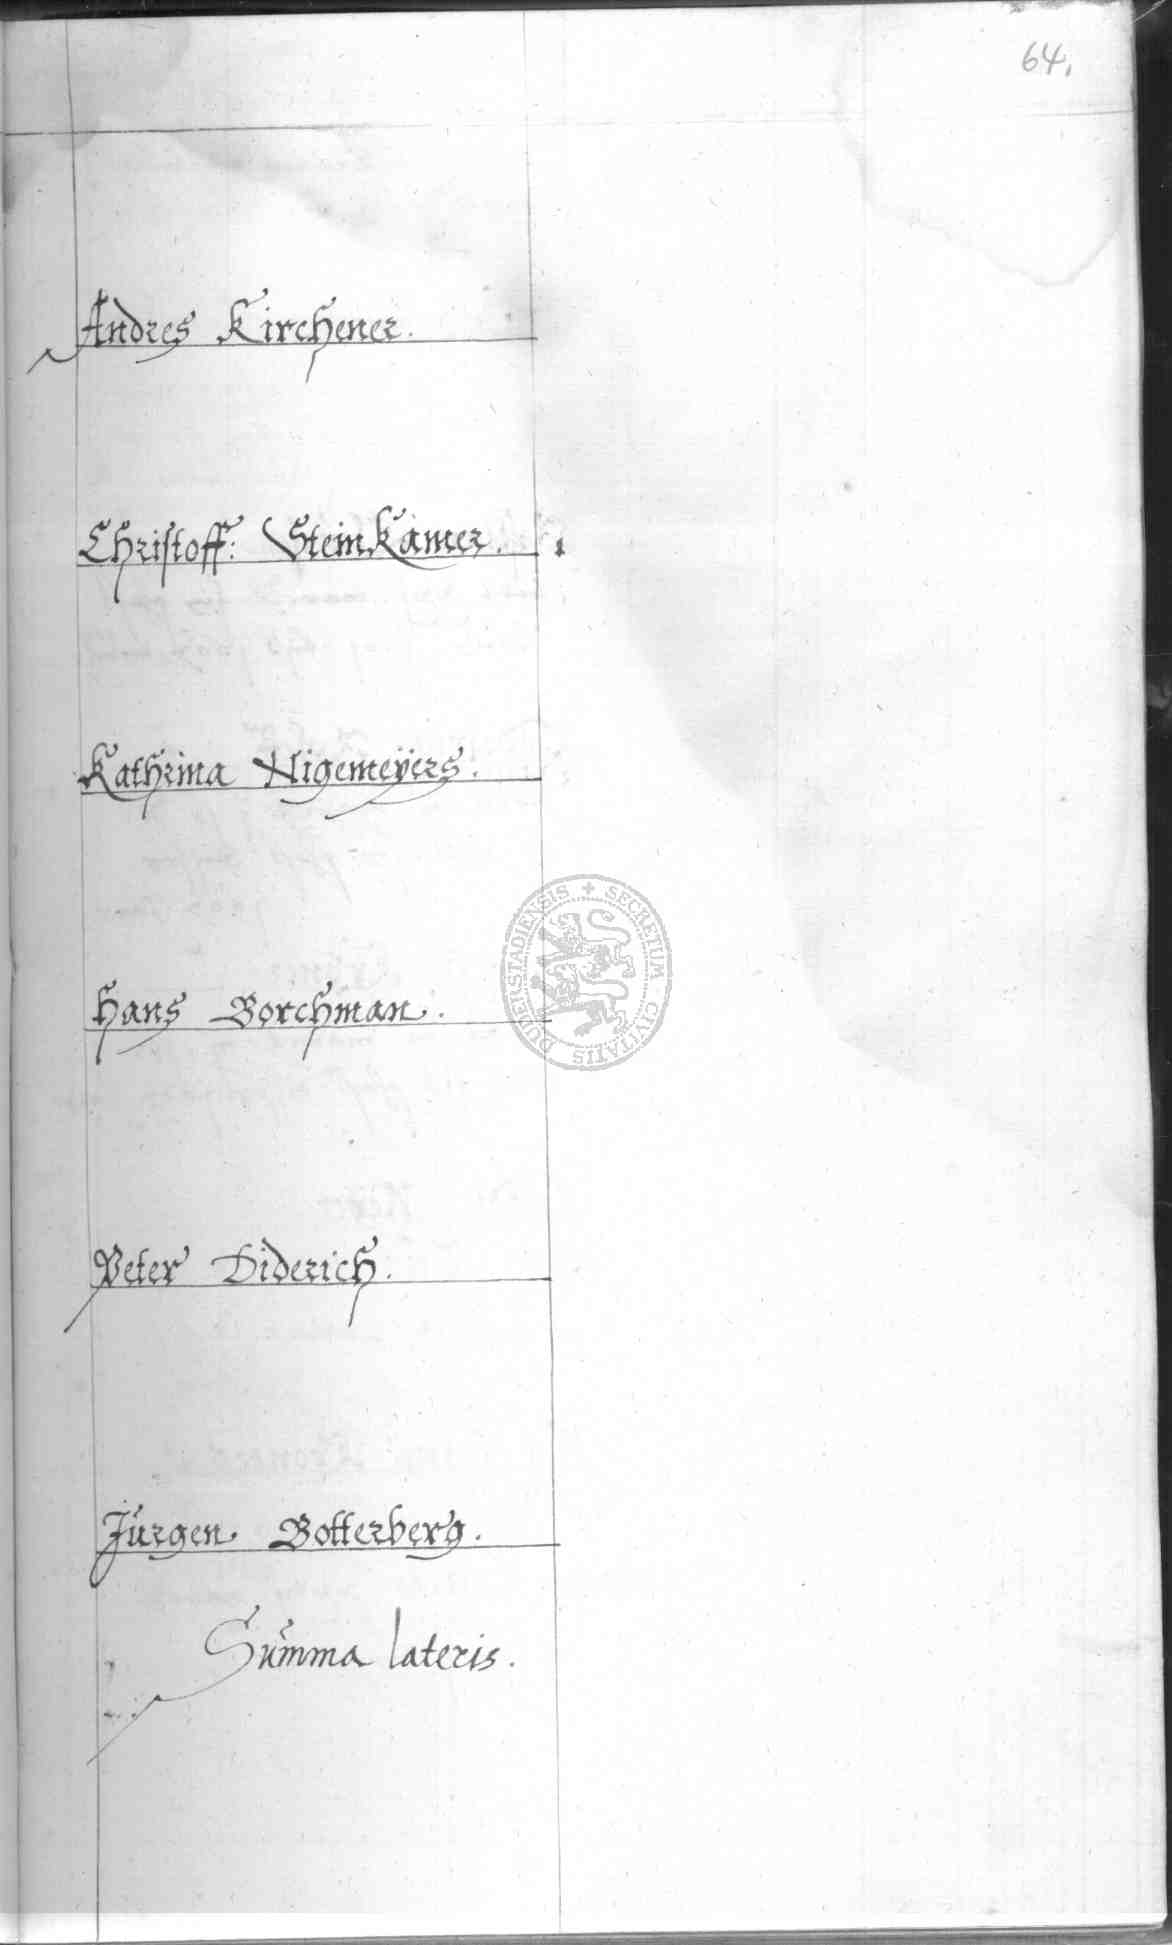 64.
Andres Kirchener.
Christoff: Steinkamer.
Kathrina Nigemeÿers.
Hans Borchman.
SECRETUM CIVITATIS DUDERSTADIENSIS
Peter Diderich.
Jürgen Botterberg.
Summa lateris.